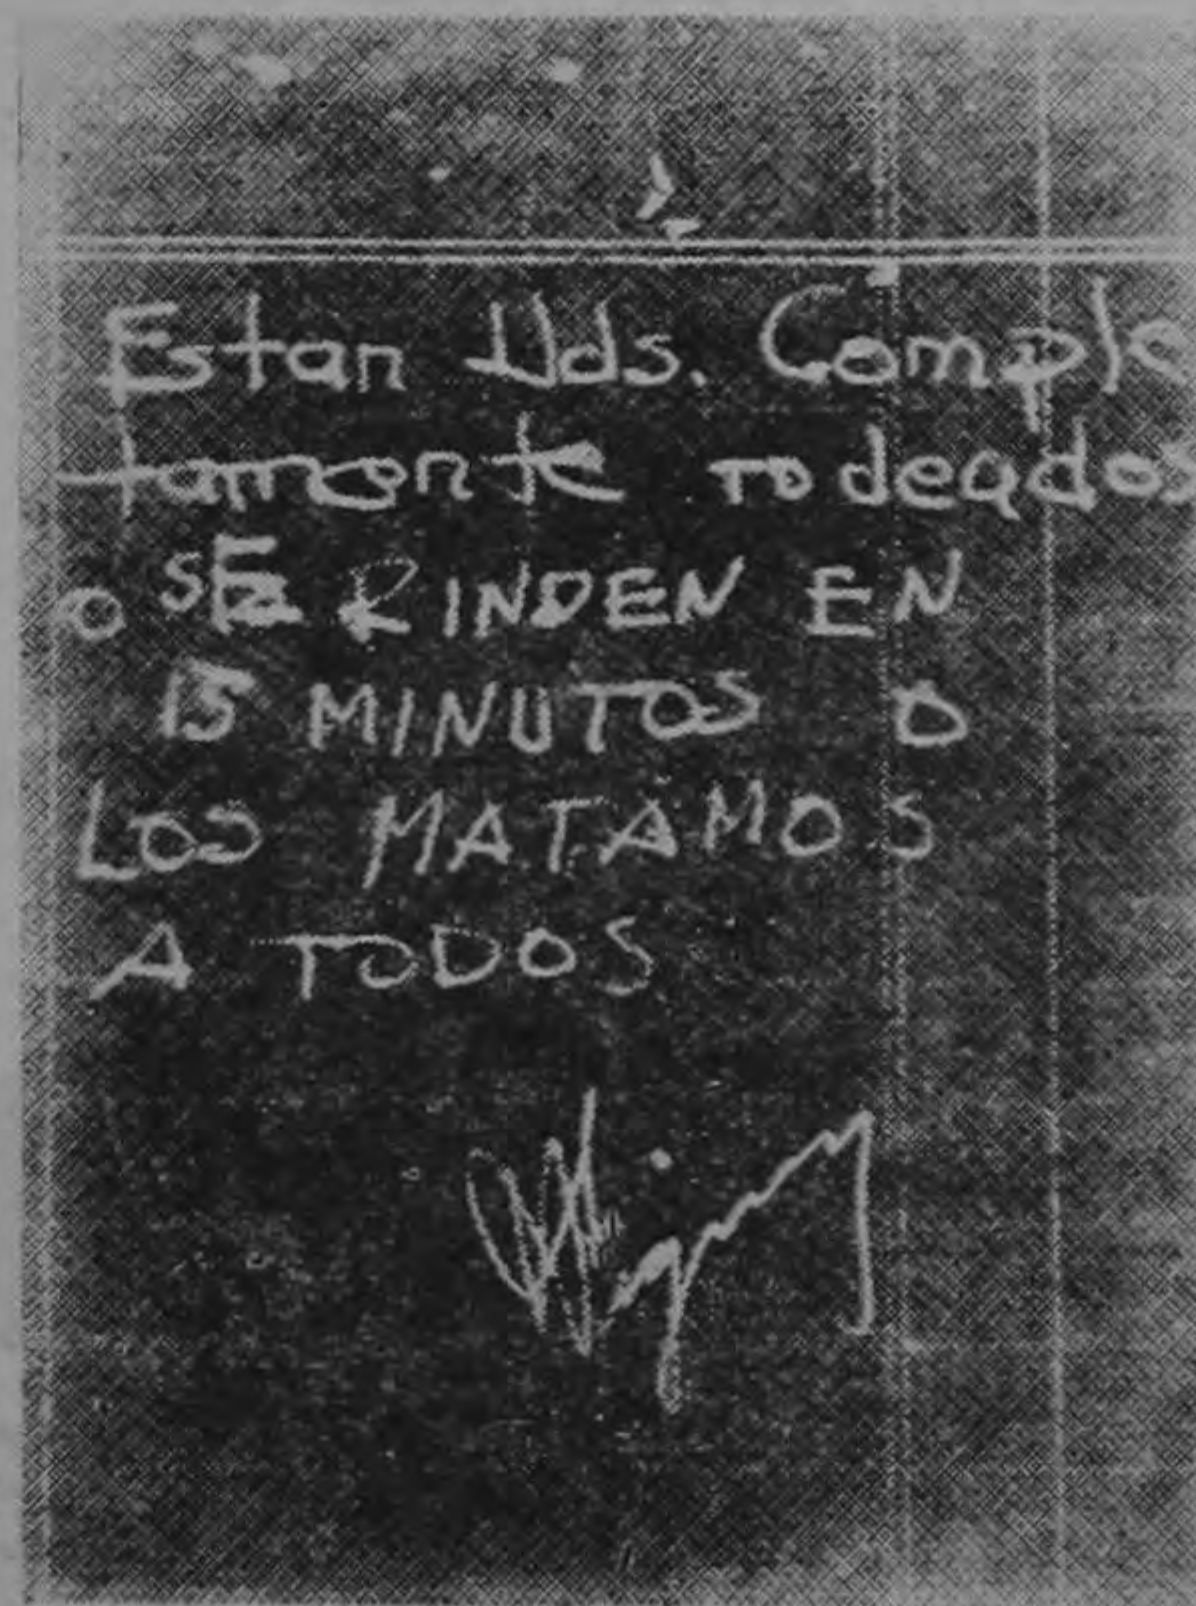 Estan Uds. Comple
tamente rodeados
o SE RINDEN EN
15 MINUTOS O
LOS MATAMOS
A TODOS